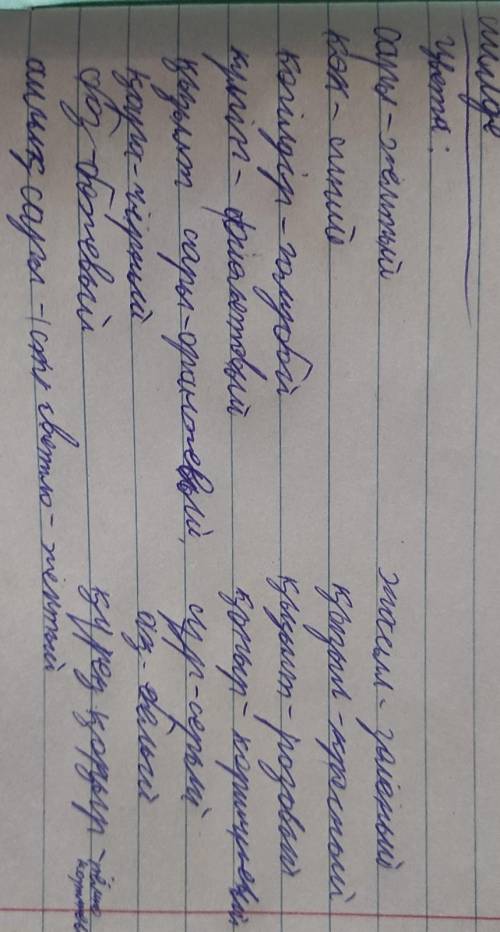 цвета:
сары - желтый жасыл - зелёный
көк - синий қызыл - красный
көгілдір - голубой қызғылт - розовый
күлгін - фиолетовый қоңыр - коричневый
қызғылт сары - оранжевый, сұр - серый
қара - чёрный ақ - белый
боз - бежевый күрең қоңыр - тёмно коричнев
ашық сары - светло - желтый